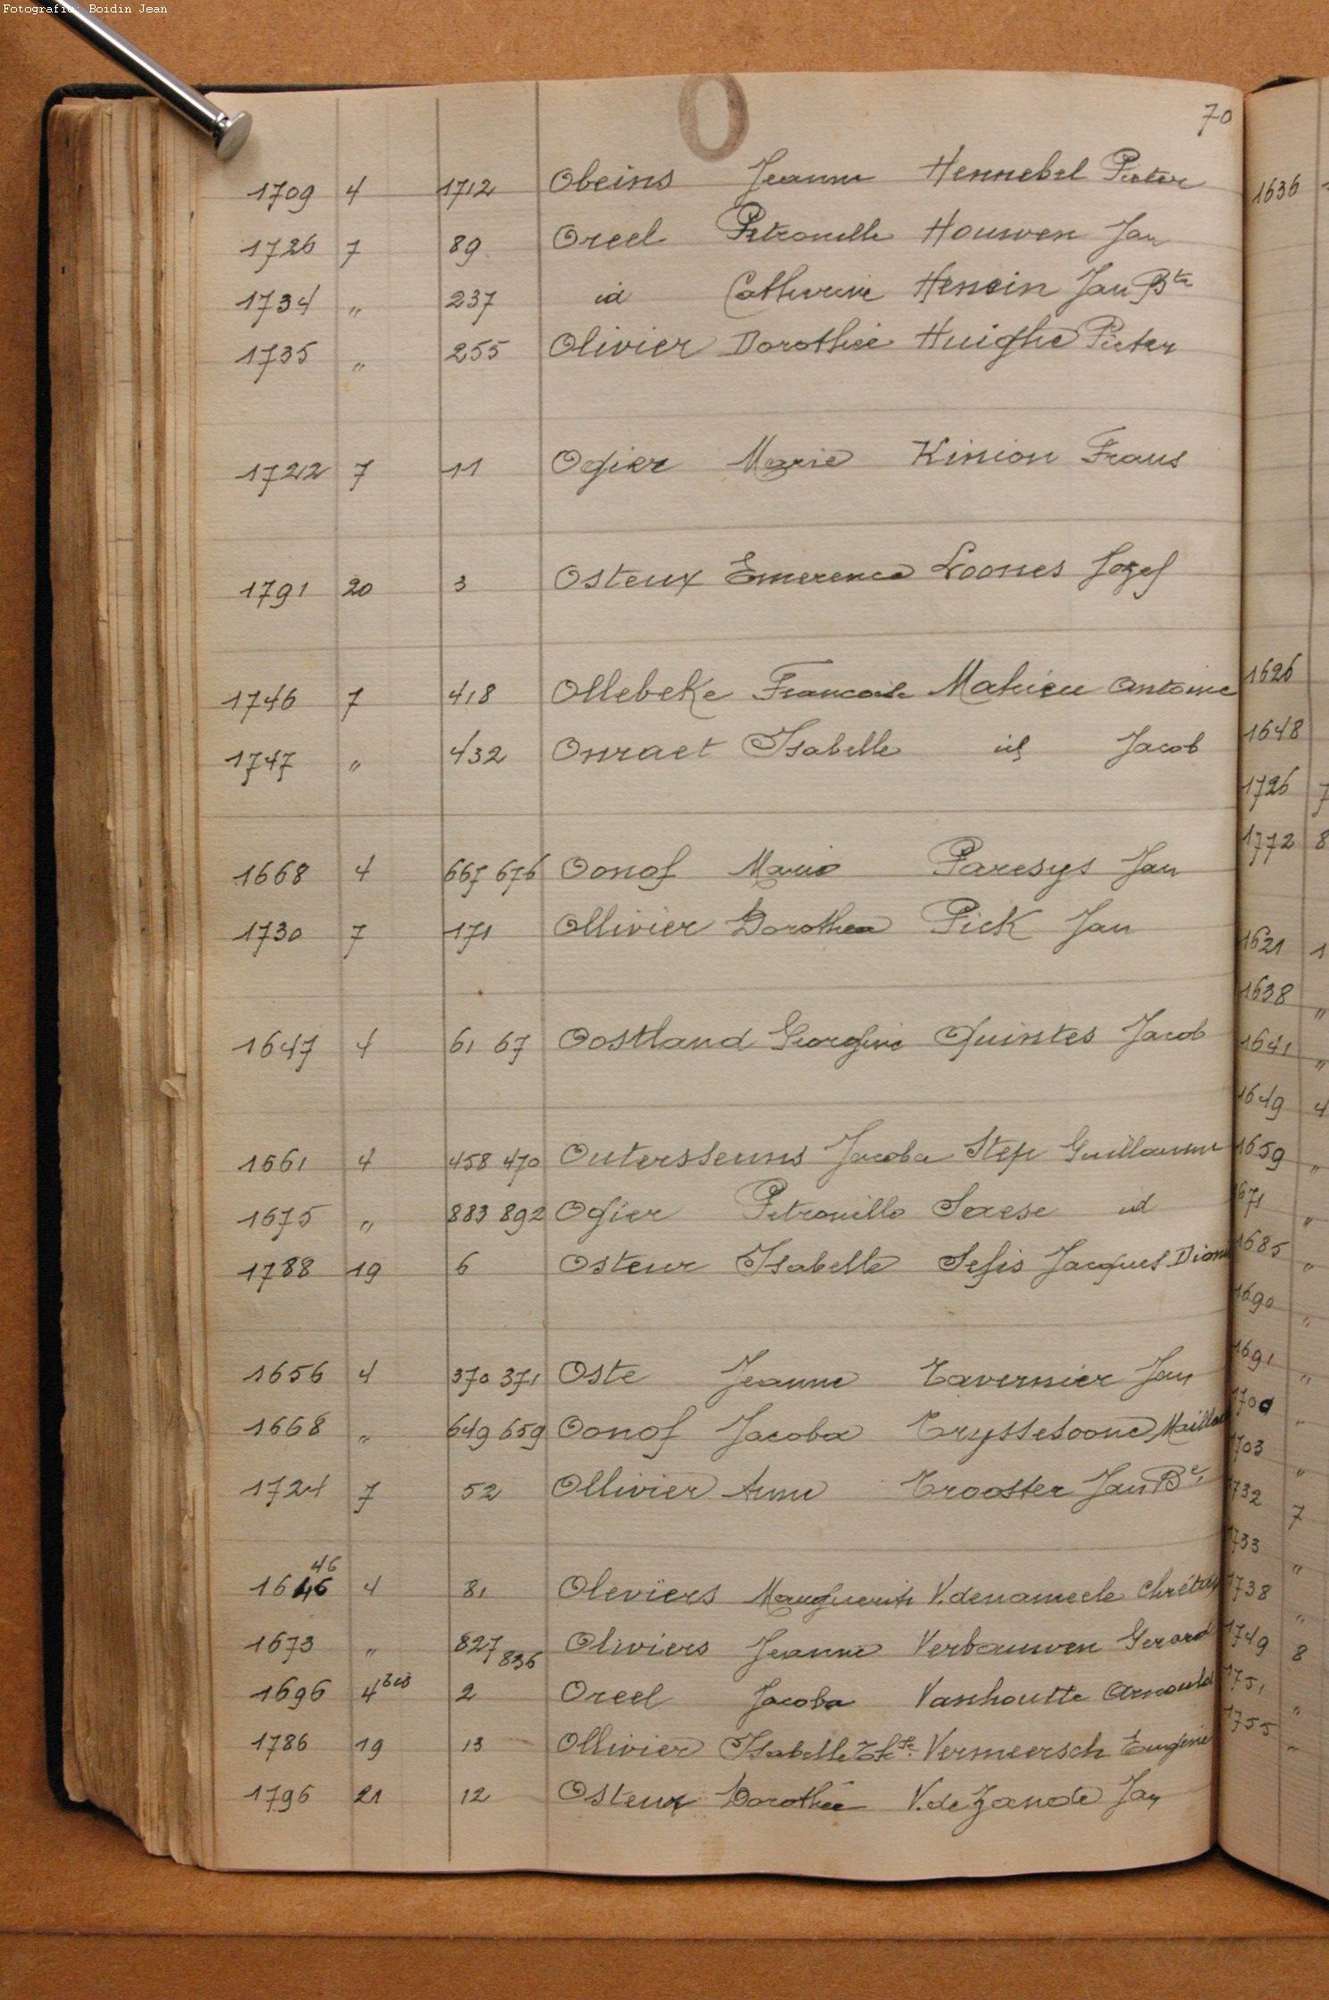 Fotografie: Boidin Jean
O
70
1709 4 1712 Obeins Jeanne Hennebel Pieter
1726 7 89 Oreel Petronille Houwen Jan
1734 " 237 id Catherine Hensin Jan Bte
1735 " 255 Olivier Dorothée Huighe Pieter
1722 7 11 Ogier Marie Kinion Frans
1791 20 3 Osteux Emerence Loones Jozef
1746 7 418 Ollebeke Francoise Mahieu Antoine
1747 " 432 Onraet Isabelle id Jacob
1668 4 667 676 Oonof Maria Paresys Jan
1730 7 171 Ollivier Dorothea Pick Jan
1647 4 61 67 Oostland Georgine Quintes Jacob
1661 4 458 470 Outersseuns Jacoba Step Guillaume
1675 " 883 892 Ogier Petronille Saese id
1788 19 6 Osteur Isabelle Sefis Jacques Dion
1656 4 370 371 Oste Jeanne Tavernier Jan
1668 " 649 659 Oonof Jacoba Tryssesoone
1724 7 52 Ollivier Anne Trooster Jan Bte
46
1646 4 81 Oleviers Marguerite V.denameele Chrétien
1673 " 827 836 Oliviers Jeanne Verbouwen Gerard
1696 4bis 2 Oreel Jacoba Vanhoutte Arnould
1786 19 13 Ollivier Isabelle Thse Vermeersch Eugène
1796 21 12 Osteux Dorothée V.de Zande Jan
1636
1626
1648
1726 7
1772 8
1621 1
1638 "
1641 "
1649 4
1659 "
1671 "
1685 "
1690 "
1691 "
1700 "
1703 "
1732 7
1733 "
1738 "
1749 8
1751 "
1755 "